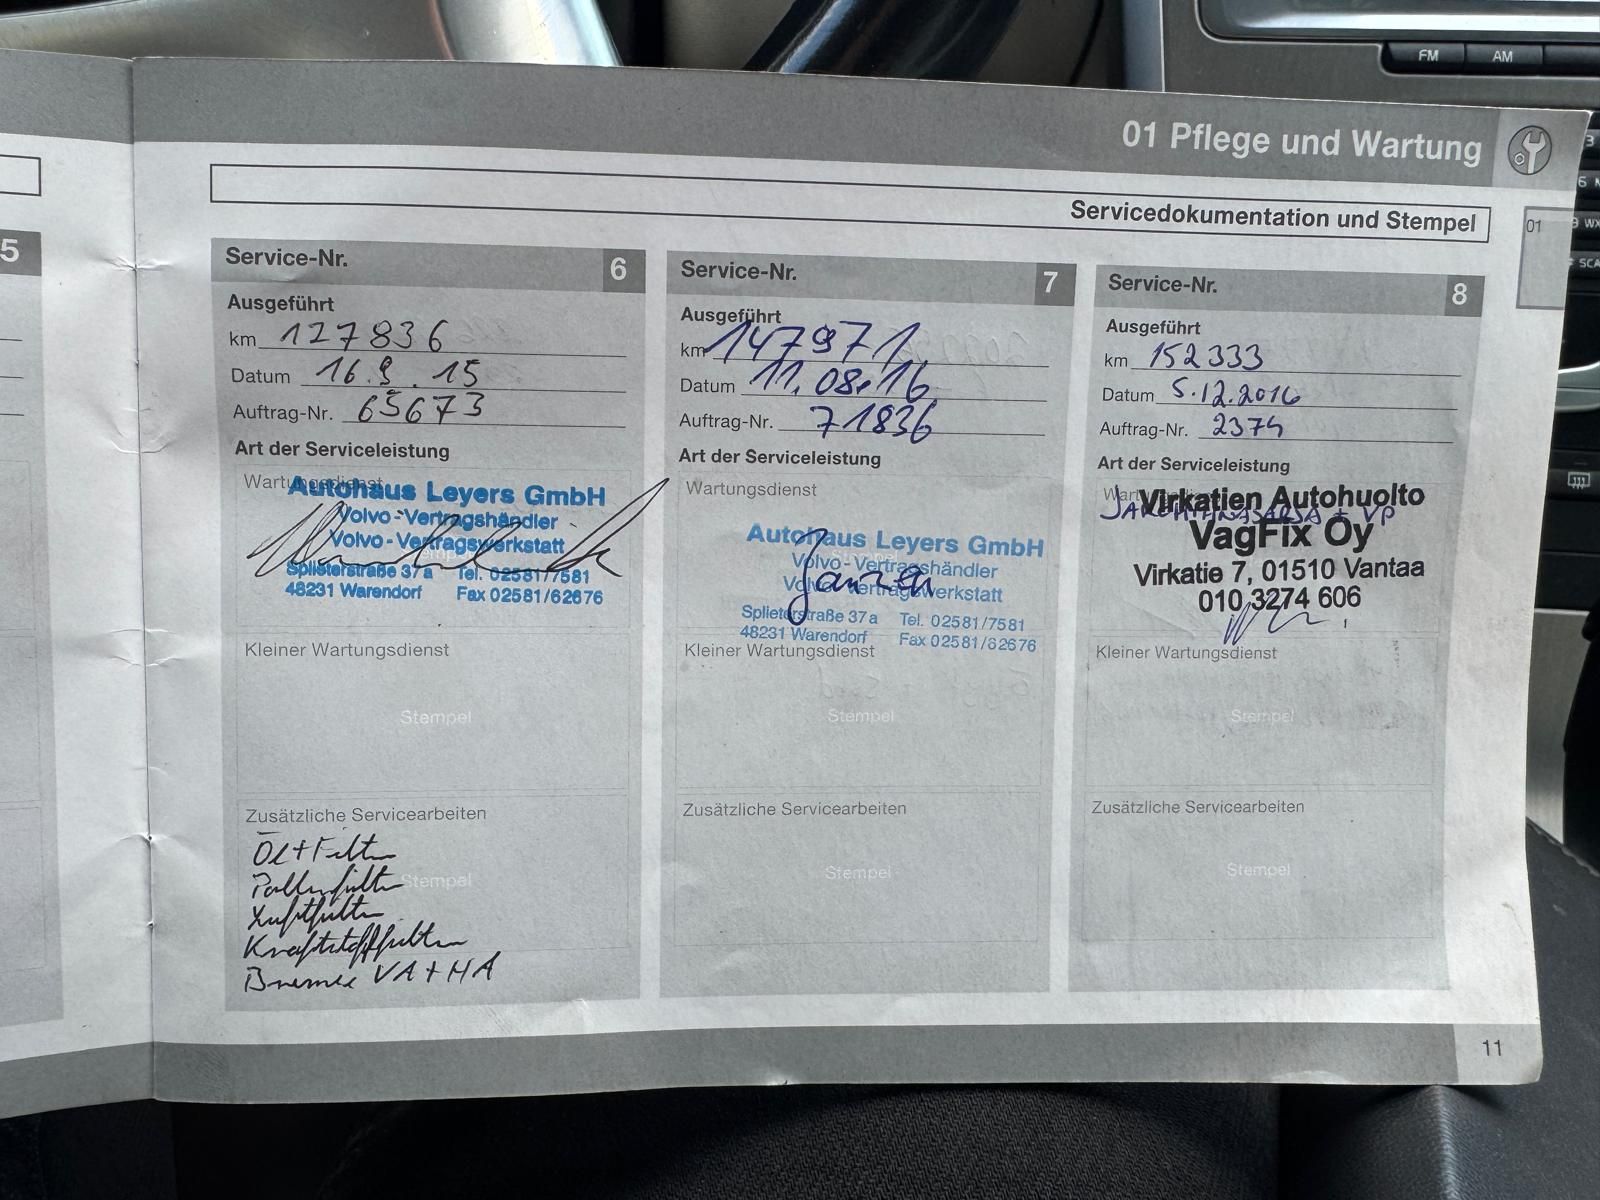 FM AM
01 Pflege und Wartung
Servicedokumentation und Stempel
01
5
Service-Nr. 6
Ausgeführt
km 127836
Datum 16.9.15
Auftrag-Nr. 65673
Art der Serviceleistung
Wartungsdienst
Autohaus Leyers GmbH
Volvo-Vertragshändler
Volvo-Vertragswerkstatt
Splieterstraße 37a Tel. 02581/7581
48231 Warendorf Fax 02581/62676
Kleiner Wartungsdienst
Stempel
Zusätzliche Servicearbeiten
Öl+Filter
Pollenfilter
Stempel
Luftfilter
Kraftstofffilter
Bremse VA+HA
Service-Nr. 7
Ausgeführt
km 147971
Datum 11.08.16
Auftrag-Nr. 71836
Art der Serviceleistung
Wartungsdienst
Autohaus Leyers GmbH
Volvo-Vertragshändler
Volvo-Vertragswerkstatt
Splieterstraße 37a Tel. 02581/7581
48231 Warendorf Fax 02581/62676
Kleiner Wartungsdienst
Stempel
Zusätzliche Servicearbeiten
Stempel
Service-Nr. 8
Ausgeführt
km 152333
Datum 5.12.2016
Auftrag-Nr. 2374
Art der Serviceleistung
Virkatien Autohuolto
JAKOHIHNASARJA + VP
VagFix Oy
Virkatie 7, 01510 Vantaa
010 3274 606
Kleiner Wartungsdienst
Stempel
Zusätzliche Servicearbeiten
Stempel
11